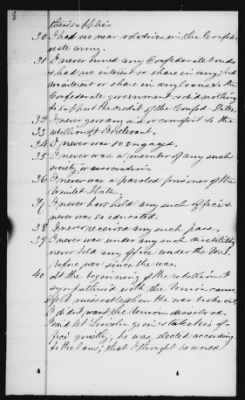 8
their supplies
30 I had no near relatives in the Confed-
erate army.
31 I never owned any Confederate bonds
& had no interest or share in any; had
no interest or share in any loan to the
Confederate government, & did nothing
to support the credit of the Confed. States.
32 I never gave any aid or comfort to the
33 rebellion.
34 I never was so engaged.
35 I never was a member of any such
society or
36 I never was a paroled prisoner of the
United States.
37 I never have held any such office &
never was so educated.
38 I never received any such pass.
39 I never was under any such disability
never held any office under the Govt.
before, nor since the war.
40 At the beginning of the rebellion I
sympathized with the Union cause
& felt miserable when the war broke out.
I didn't want the Union dissolved.
I said let Lincoln go in & take his of-
fice quietly; he was elected according
to the laws; that I thought he was a